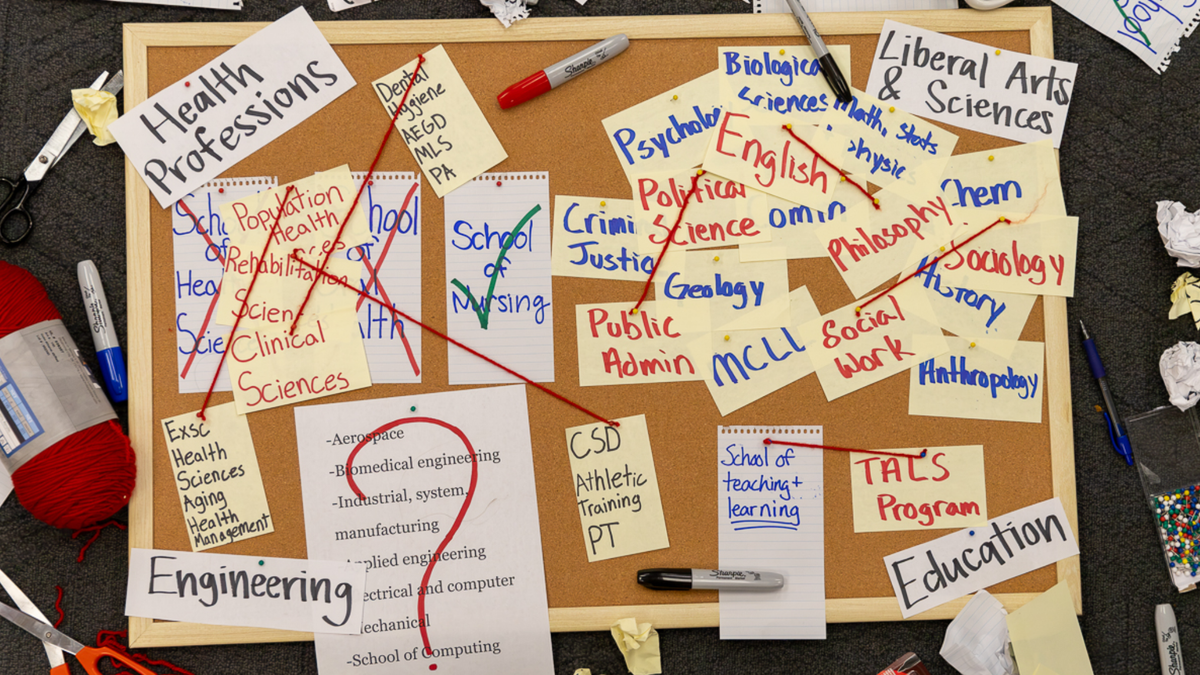 Health
Professions
Dental
Hygiene
AEGD
MLS
PA
Sharpie
Biological
Sciences
Liberal Arts
& Sciences
Math, Stats
Physic
Psycholo
English
Chem
Political
Science
omin
Philosophy
Sociology
History
Crimi
Justic
Geology
Public
Admin
MCLL
Social
Work
Anthropology
School
of
Nursing
Population
Health
Rehabilitation
Scien
Clinical
Sciences
Sch
of
Hea
Scie
hool
for
lth
Exsc
Health
Sciences
Aging
Health
Management
CSD
Athletic
Training
PT
School of
teaching+
learning
TALS
Program
Education
Engineering
-Aerospace
-Biomedical engineering
-Industrial, system,
manufacturing
Applied engineering
ectrical and computer
echanical
-School of Computing
?
Sharpie